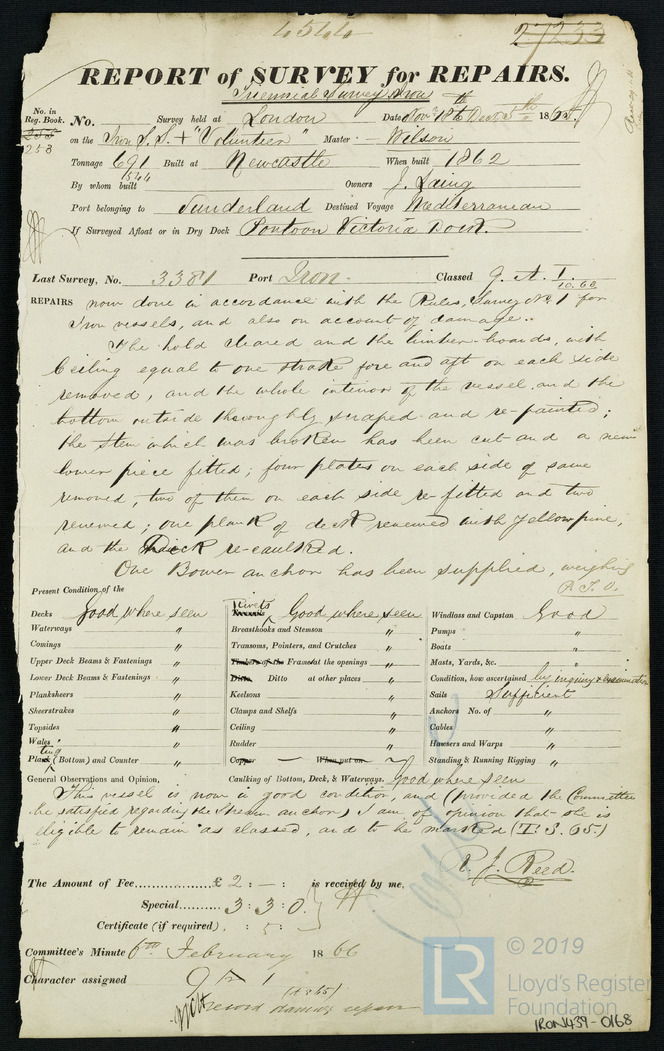 4544
27233
REPORT of SURVEY for REPAIRS.
Triennial Survey Iron
No. in Reg. Book. No. Survey held at London Date Nov 18th Decr 5th 1865
253 on the Iron S.S + "Volunteer" Master Wilson
Tonnage 691 Built at Newcastle When built 1862
By whom built 1544 Owners J. Laing
Port belonging to Sunderland Destined Voyage Mediterranean
If Surveyed Afloat or in Dry Dock Pontoon Victoria Dock.
Last Survey, No. 3381 Port Iron Classed 9. A. 1. 10.62
REPAIRS now done in accordance with the Rules, Survey No. 1 for
Iron vessels, and also on account of damage..
The hold cleared and the limber-boards, with
Ceiling equal to one strake fore and aft on each side
removed, and the whole interior of the vessel and the
bottom outside thoroughly scraped and re-painted;
the Stem which was broken has been cut and a new
lower piece fitted; four plates on each side of same
removed, two of them on each side re-fitted and two
renewed; one plank of deck renewed with yellow pine,
and the Deck re-caulked.
One Bower anchor has been supplied, weighing
P.T.O.
Present Condition of the
Decks Good where seen
Waterways "
Comings "
Upper Deck Beams & Fastenings "
Lower Deck Beams & Fastenings "
Planksheers "
Sheerstrakes "
Topsides "
Wales "
Plating (Bottom) and Counter "
Rivets Good where seen
Breasthooks and Stemson "
Transoms, Pointers, and Crutches "
Timbers of the Frames at the openings "
Ditto Ditto at other places "
Keelsons "
Clamps and Shelfs "
Ceiling "
Rudder "
Copper When put on
Caulking of Bottom, Deck, & Waterways. Good where seen
Windlass and Capstan Good
Pumps "
Boats "
Masts, Yards, &c. "
Condition, how ascertained by inquiry & examination
Sails Sufficient
Anchors No. of "
Cables "
Hawsers and Warps "
Standing & Running Rigging "
General Observations and Opinion,
This vessel is now in good condition, and (provided the Committee
be satisfied regarding the Stream anchor) I am of opinion that she is
eligible to remain as classed, and to be marked (T.S. 65.)
R. J. Reed.
The Amount of Fee £ 2 : - : is received by me,
Special 3 : 3 : 0
Certificate (if required) : 5 :
Committee's Minute 6th February 1866
Character assigned 9 A 1
record damage repair
© 2019
LR Lloyd's Register
Foundation
IRON439-0168